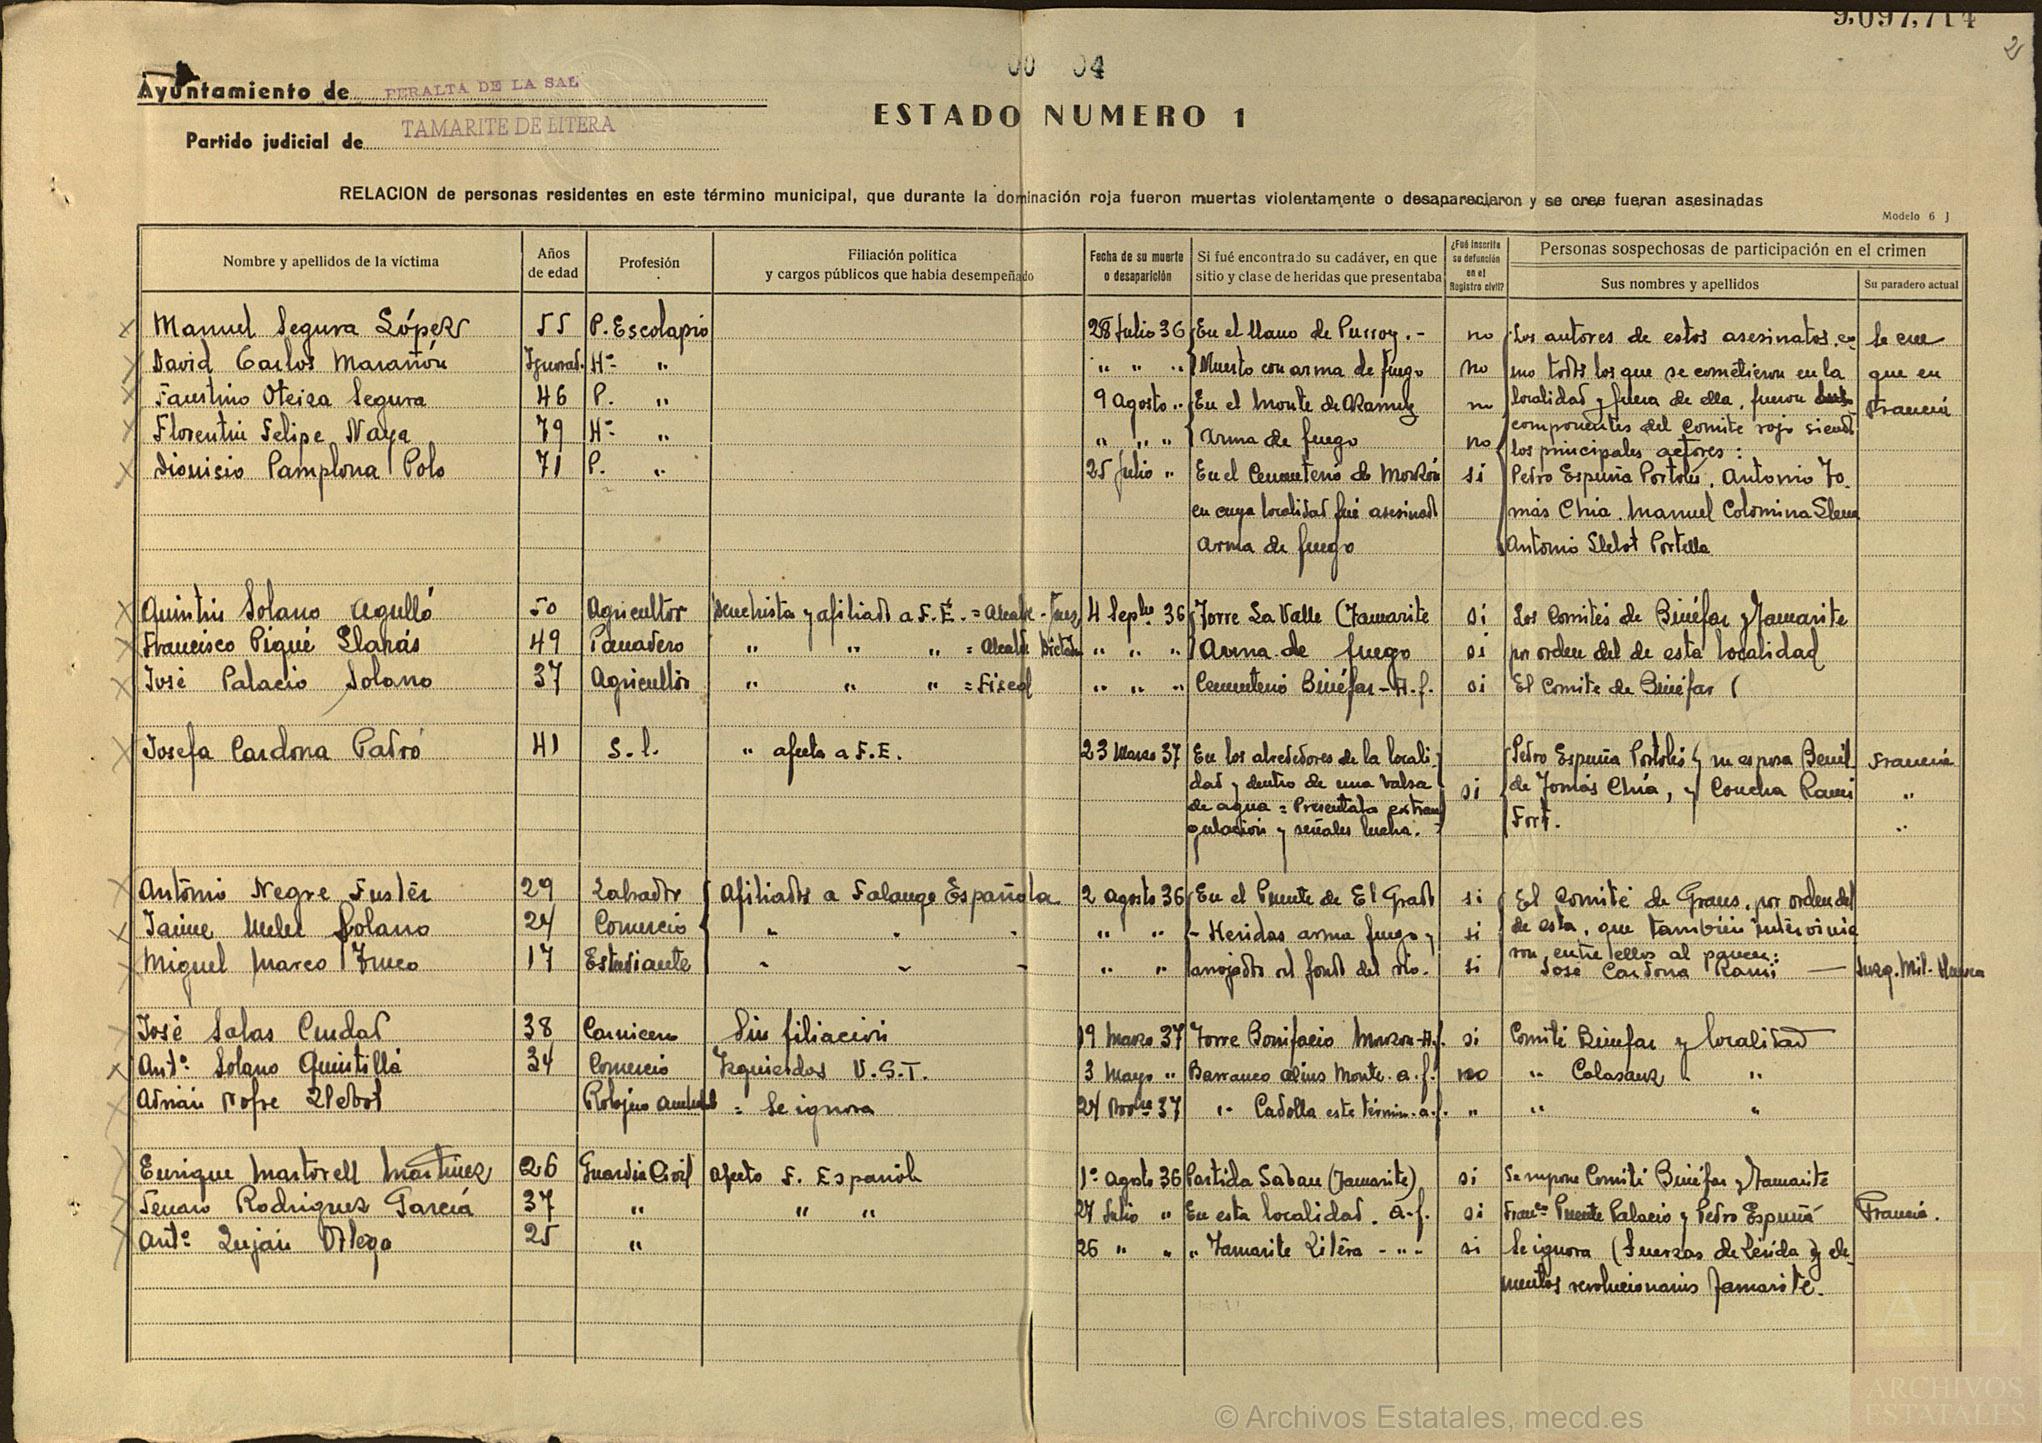 9,097,714
2
00 04
Ayuntamiento de PERALTA DE LA SAL
ESTADO NUMERO 1
Partido judicial de TAMARITE DE LITERA
RELACION de personas residentes en este término municipal, que durante la dominación roja fueron muertas violentamente o desaparecieron y se cree fueran asesinadas
Modelo 6 J
Nombre y apellidos de la víctima
Años de edad
Profesión
Filiación política y cargos públicos que había desempeñado
Fecha de su muerte o desaparición
Si fué encontrado su cadáver, en que sitio y clase de heridas que presentaba
¿Fué inscrita su defunción en el Registro civil?
Personas sospechosas de participación en el crimen
Sus nombres y apellidos
Su paradero actual
Manuel Segura López 55 P. Escolapio 28 Julio 36 En el llano de Purroy.- no Los autores de estos asesinatos, co- Se cree
David Carlos Marañón Ignorad. Hº " " " " Muerto con arma de fuego no mo todos los que se cometieron en la que en
Faustino Oteiza Segura 46 P. " 9 Agosto " En el Monte de no localidad y fuera de ella, fueron Francia
Florentin Felipe Naya 79 Hº " " " " Arma de fuego no componentes del Comite rojo siendo
los principales actores:
Dionisio Pamplona Polo 71 P. " 25 Julio " En el Cementerio de Monzón si Pedro Espuña Portolés, Antonio To-
en cuya localidad fué asesinado más Chia, Manuel Colomina
Arma de fuego Antonio Llebot Portella
Quintin Solano Agulló 50 Agricultor Derechista y afiliado a F.E. = Alcalde - Juez 4 Sepbre 36 Torre La Valle (Tamarite si Los Comités de Binéfar y Tamarite
Francisco Piqué Llarás 49 Panadero " " " = Alcalde Dictad. " " " Arma de fuego si por orden del de esta localidad
José Palacio Solano 37 Agricultor " " " = Fiscal " " " Cementerio Binéfar - A.f. si El Comite de Binéfar (
Josefa Cardona Padró 41 S.l. " afecta a F.E. 23 Marzo 37 En los alrededores de la locali- Pedro Espuña Portolés y su esposa Benil- Francia
dad y dentro de una valsa si de Tomás Chia, y Concha Rami "
de agua = Presentaba extran- Fort. "
gulación y señales lucha.
Antonio Negre Fustér 29 Labrador Afiliados a Falange Española 2 Agosto 36 En el Puente de El Grado si El Comité de Graus, por orden del
Jaime Meler Solano 24 Comercio " " " " " - Heridas arma fuego y si de esta, que también intervinie
Miguel Marco Fumo 17 Estudiante " " " " " arrojados al fondo del rio. si ron, entre ellos al parecer:
José Cardona Rami — Juzg. Mil. Huesca
José Salas Ciudad 38 Carnicero Sin filiación 19 Marzo 37 Torre Bonifacio Monzon-A.f. si Comité Binéfar y localidad
Antº Solano Quintillá 34 Comercio Izquierdas U.G.T. 3 Mayo " Barranco Monte. a.f. no " Calasanz " "
Adrián Nofre Llebot Relojero = Se ignora 24 Novbre 37 " Cadolla este términ. a.f. " " "
Enrique Martorell Martinez 26 Guardia Civil Afecto F. Española 1º Agosto 36 Partida Saban (Tamarite) si Se supone Comité Binéfar y Tamarite
Genaro Rodriguez Garcia 37 " " " 27 Julio " En esta localidad. a.f. si Francº Puente Palacio y Pedro Espuña Francia.
Antº Luján Ortega 25 " 26 " " " Tamarite Litéra - " - si Se ignora (Fuerzas de Lérida y ele-
mentos revolucionarios Tamarite.
© Archivos Estatales, mecd.es
AE
ARCHIVOS
ESTATALES